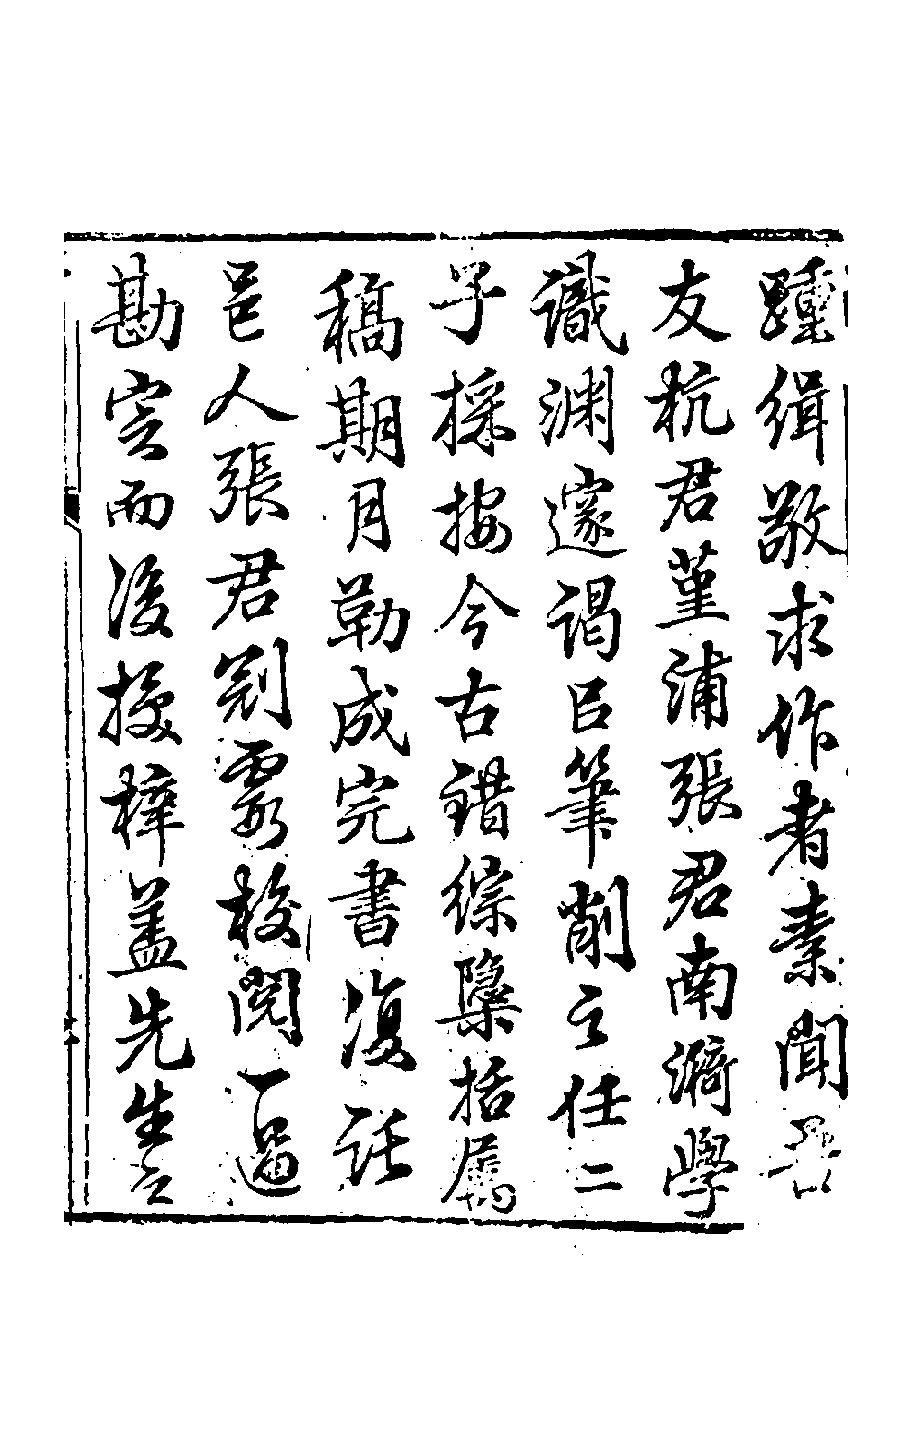 踵緝敬求作者素聞吾
友杭君堇浦張君南漪學
識渊邃謁臣筆削之任二
子採按今古錯綜隱括属
稿期月勒成完書復託
邑人張君剡霞校閱一過
勘定而後授梓盖先生之